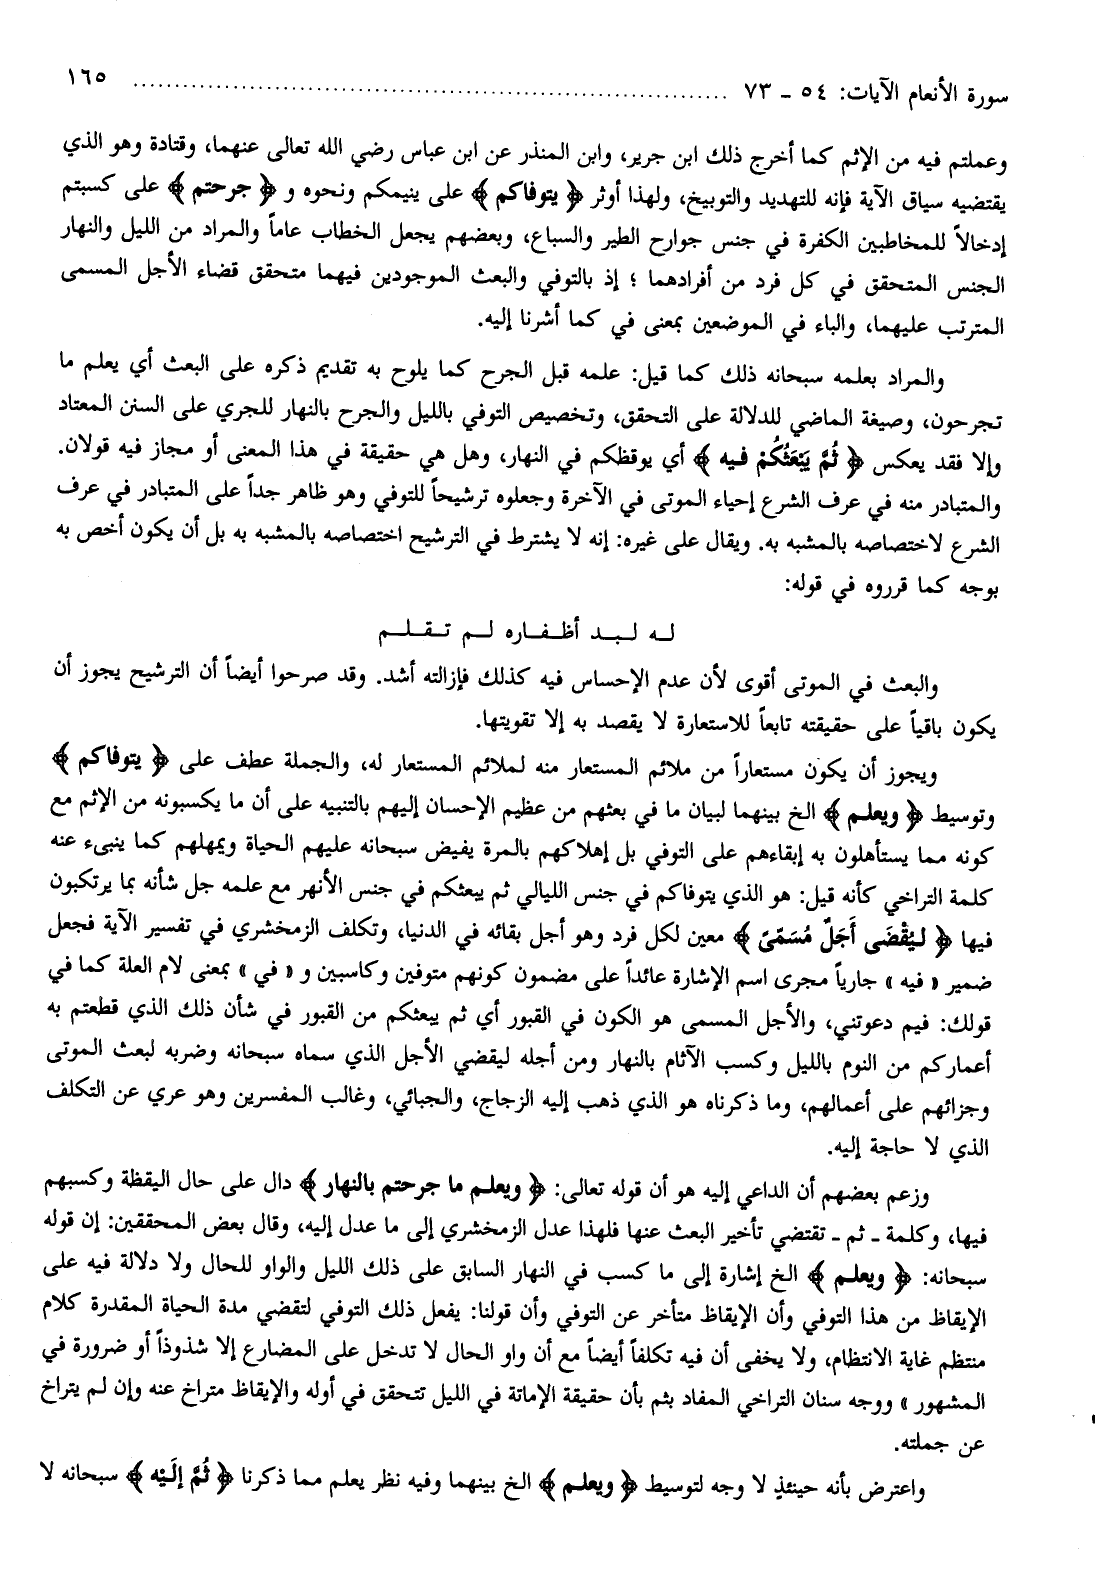 سورة الأنعام الآيات: ٥٤ ـ ٧٣ ........................................ ١٦٥
وعملتم فيه من الإثم كما أخرج ذلك ابن جرير، وابن المنذر عن ابن عباس رضي الله تعالى عنهما، وقتادة وهو الذي
يقتضيه سياق الآية فإنه للتهديد والتوبيخ، ولهذا أوثر ﴿ يتوفاكم ﴾ على ينيمكم ونحوه و ﴿ جرحتم ﴾ على كسبتم
إدخالاً للمخاطبين الكفرة في جنس جوارح الطير والسباع، وبعضهم يجعل الخطاب عاماً والمراد من الليل والنهار
الجنس المتحقق في كل فرد من أفرادهما ؛ إذ بالتوفي والبعث الموجودين فيهما متحقق قضاء الأجل المسمى
المترتب عليهما، والباء في الموضعين بمعنى في كما أشرنا إليه.
والمراد بعلمه سبحانه ذلك كما قيل: علمه قبل الجرح كما يلوح به تقديم ذكره على البعث أي يعلم ما
تجرحون، وصيغة الماضي للدلالة على التحقق، وتخصيص التوفي بالليل والجرح بالنهار للجري على السنن المعتاد
وإلا فقد يعكس ﴿ ثُمَّ يَبْعَثُكُمْ فيه ﴾ أي يوقظكم في النهار، وهل هي حقيقة في هذا المعنى أو مجاز فيه قولان.
والمتبادر منه في عرف الشرع إحياء الموتى في الآخرة وجعلوه ترشيحاً للتوفي وهو ظاهر جداً على المتبادر في عرف
الشرع لاختصاصه بالمشبه به. ويقال على غيره: إنه لا يشترط في الترشيح اختصاصه بالمشبه به بل أن يكون أخص به
بوجه كما قرروه في قوله:
له لبد أظفاره لم تقلم
والبعث في الموتى أقوى لأن عدم الإحساس فيه كذلك فإزالته أشد. وقد صرحوا أيضاً أن الترشيح يجوز أن
يكون باقياً على حقيقته تابعاً للاستعارة لا يقصد به إلا تقويتها.
ويجوز أن يكون مستعاراً من ملائم المستعار منه لملائم المستعار له، والجملة عطف على ﴿ يتوفاكم ﴾
وتوسيط ﴿ ويعلم ﴾ الخ بينهما لبيان ما في بعثهم من عظيم الإحسان إليهم بالتنبيه على أن ما يكسبونه من الإثم مع
كونه مما يستأهلون به إبقاءهم على التوفي بل إهلاكهم بالمرة يفيض سبحانه عليهم الحياة ويمهلهم كما ينبىء عنه
كلمة التراخي كأنه قيل: هو الذي يتوفاكم في جنس الليالي ثم يبعثكم في جنس الأنهر مع علمه جل شأنه بما يرتكبون
فيها ﴿ لِيُقْضَى أَجَلٌ مُسَمّىً ﴾ معين لكل فرد وهو أجل بقائه في الدنيا، وتكلف الزمخشري في تفسير الآية فجعل
ضمير « فيه » جارياً مجرى اسم الإشارة عائداً على مضمون كونهم متوفين وكاسبين و « في » بمعنى لام العلة كما في
قولك: فيم دعوتني، والأجل المسمى هو الكون في القبور أي ثم يبعثكم من القبور في شأن ذلك الذي قطعتم به
أعماركم من النوم بالليل وكسب الآثام بالنهار ومن أجله ليقضي الأجل الذي سماه سبحانه وضربه لبعث الموتى
وجزائهم على أعمالهم، وما ذكرناه هو الذي ذهب إليه الزجاج، والجبائي، وغالب المفسرين وهو عري عن التكلف
الذي لا حاجة إليه.
وزعم بعضهم أن الداعي إليه هو أن قوله تعالى: ﴿ ويعلم ما جرحتم بالنهار ﴾ دال على حال اليقظة وكسبهم
فيها، وكلمة ـ ثم ـ تقتضي تأخير البعث عنها فلهذا عدل الزمخشري إلى ما عدل إليه، وقال بعض المحققين: إن قوله
سبحانه: ﴿ ويعلم ﴾ الخ إشارة إلى ما كسب في النهار السابق على ذلك الليل والواو للحال ولا دلالة فيه على
الإيقاظ من هذا التوفي وأن الإيقاظ متأخر عن التوفي وأن قولنا: يفعل ذلك التوفي لتقضي مدة الحياة المقدرة كلام
منتظم غاية الانتظام، ولا يخفى أن فيه تكلفاً أيضاً مع أن واو الحال لا تدخل على المضارع إلا شذوذاً أو ضرورة في
المشهور » ووجه سنان التراخي المفاد بثم بأن حقيقة الإماتة في الليل تتحقق في أوله والإيقاظ متراخ عنه وإن لم يتراخ
عن جملته.
واعترض بأنه حينئذٍ لا وجه لتوسيط ﴿ ويعلم ﴾ الخ بينهما وفيه نظر يعلم مما ذكرنا ﴿ ثُمَّ إِلَيْه ﴾ سبحانه لا